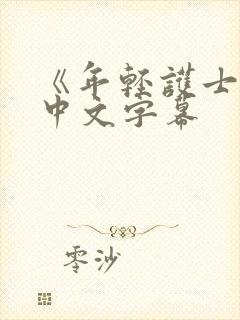 《年轻護士
中文字幕
零沙